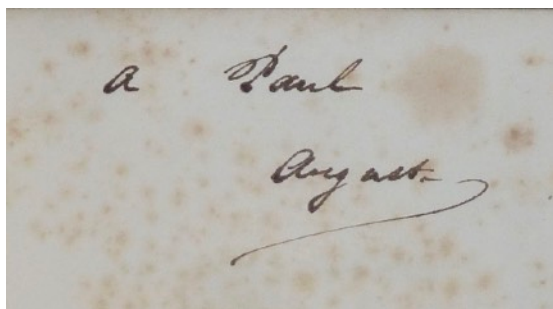 a Paul
August.